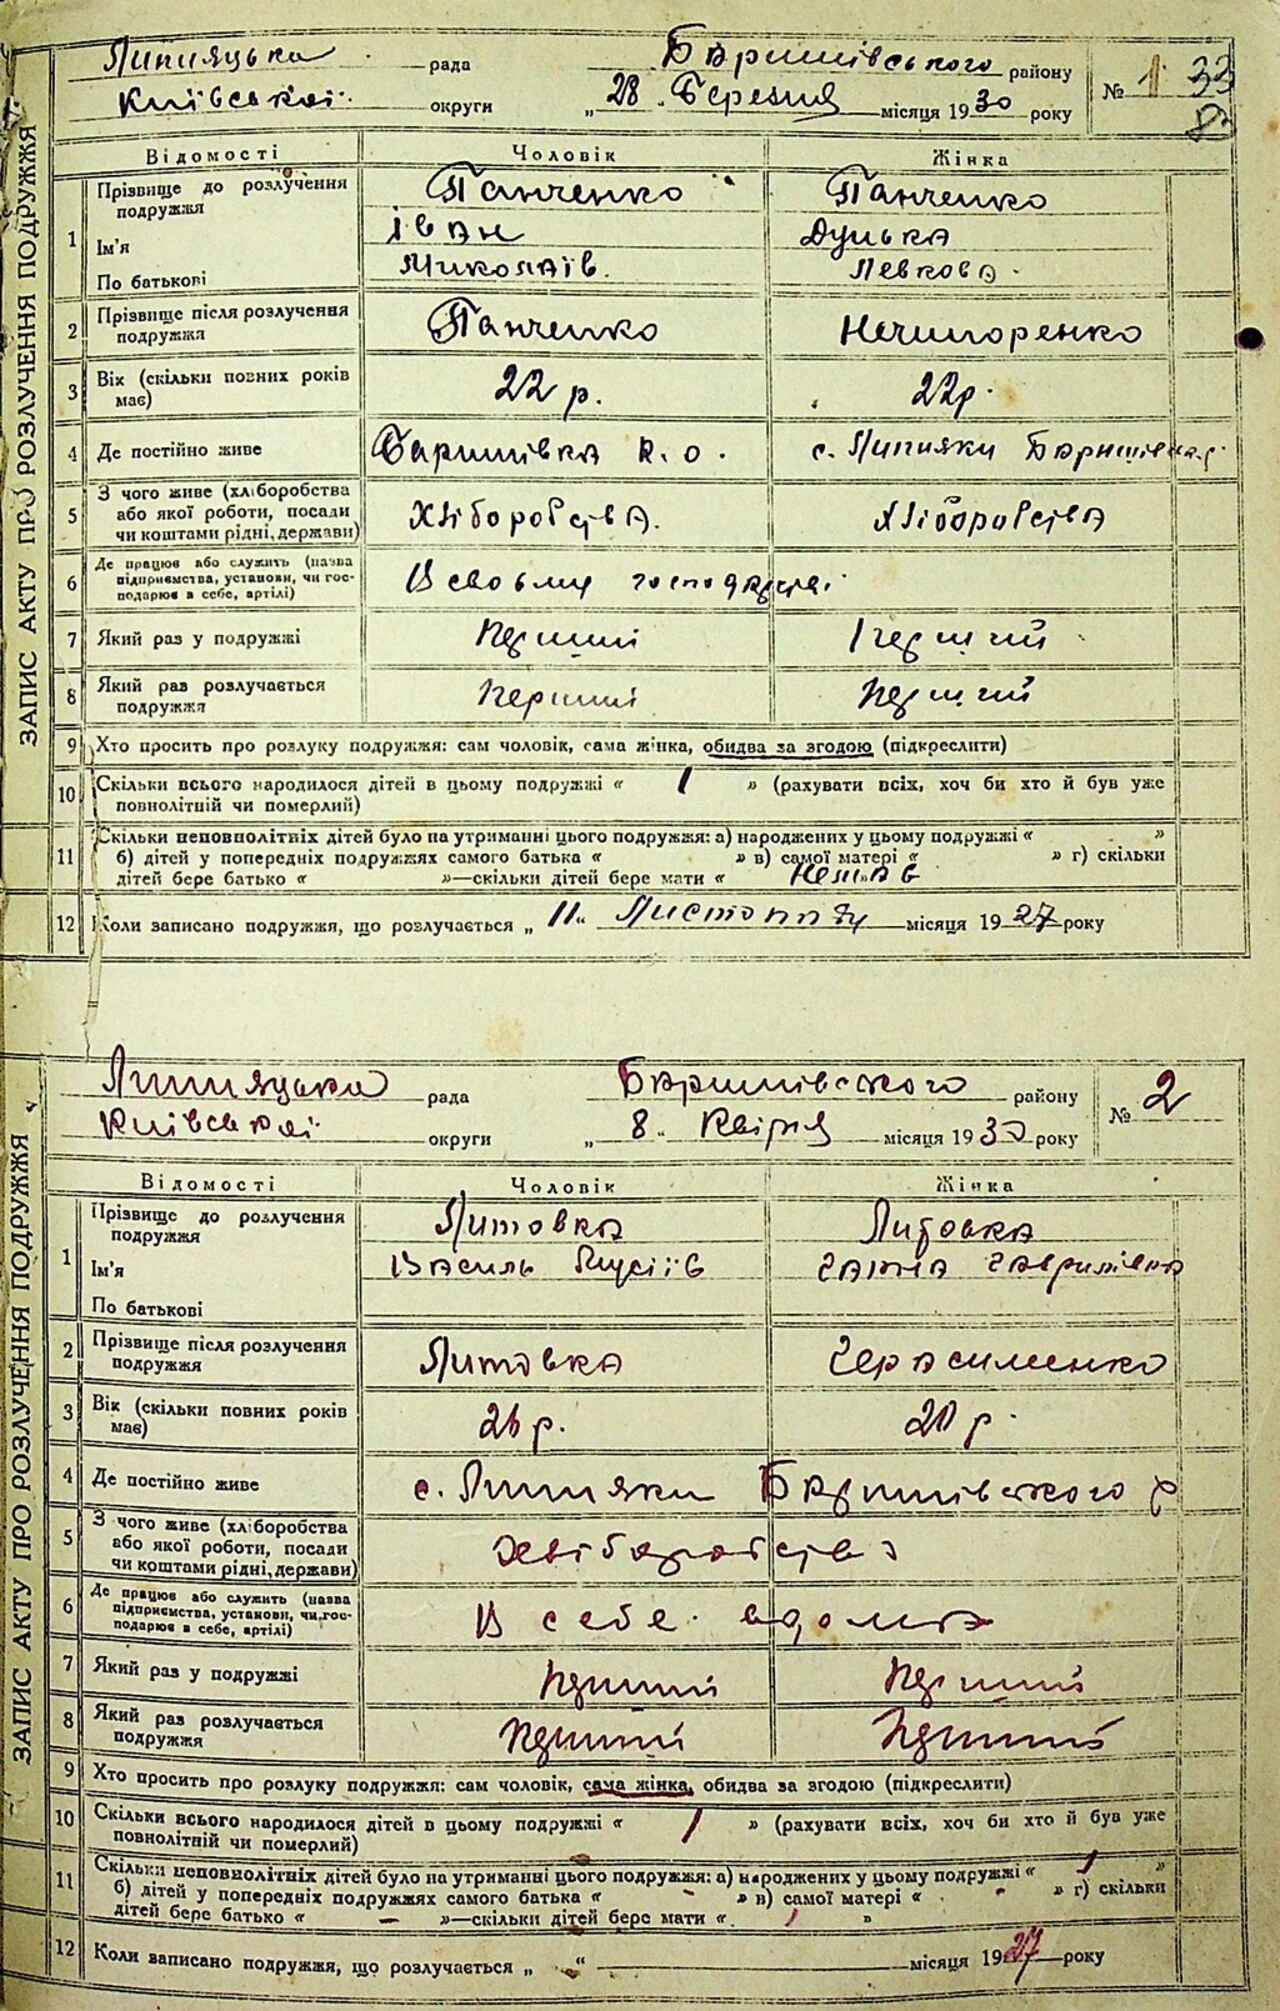 ЗАПИС АКТУ ПРО РОЗЛУЧЕННЯ ПОДРУЖЖЯ
Липняцька рада Баришівського району № 1 33
Київської округи „ 28 „ Березня місяця 1930 року
Відомості Чоловік Жінка
1 Прізвище до розлучення подружжя Панченко Панченко
Ім'я Іван Дунька
По батькові Миколаїв. Левкова
2 Прізвище після розлучення подружжя Панченко Нечипоренко
3 Вік (скільки повних років має) 22 р. 22 р.
4 Де постійно живе Баришівка К. о. с. Липняки
5 З чого живе (хліборобства або якої роботи, посади чи коштами рідні, держави) Хліборобства. Хліборобства
6 Де працює або служить (назва підприємства, установи, чи господарює в себе, артілі) В своьму
7 Який раз у подружжі Перший Перший
8 Який раз розлучається подружжя Перший Перший
9 Хто просить про розлуку подружжя: сам чоловік, сама жінка, обидва за згодою (підкреслити)
10 Скільки всього народилося дітей в цьому подружжі « 1 » (рахувати всіх, хоч би хто й був уже
повнолітній чи померлий)
11 Скільки неповнолітніх дітей було на утриманні цього подружжя: а) народжених у цьому подружжі « »
б) дітей у попередніх подружжях самого батька « » в) самої матері « » г) скільки
дітей бере батько « »—скільки дітей бере мати «
12 Коли записано подружжя, що розлучається „ 11 “ Листопаду місяця 1927 року
ЗАПИС АКТУ ПРО РОЗЛУЧЕННЯ ПОДРУЖЖЯ
Липняцька рада Баришівського району № 2
Київської округи „ 8 „ Квітня місяця 1930 року
Відомості Чоловік Жінка
1 Прізвище до розлучення подружжя Литовка Литовка
Ім'я Василь Мусіїв Ганна Гаврилівна
По батькові
2 Прізвище після розлучення подружжя Литовка Герасименко
3 Вік (скільки повних років має) р. р.
4 Де постійно живе с. Липняки Баришівського р
5 З чого живе (хліборобства або якої роботи, посади чи коштами рідні, держави) Хліборобство
6 Де працює або служить (назва підприємства, установи, чи господарює в себе, артілі) В себе вдома
7 Який раз у подружжі Перший Перший
8 Який раз розлучається подружжя Перший Перший
9 Хто просить про розлуку подружжя: сам чоловік, сама жінка, обидва за згодою (підкреслити)
10 Скільки всього народилося дітей в цьому подружжі « 1 » (рахувати всіх, хоч би хто й був уже
повнолітній чи померлий)
11 Скільки неповнолітніх дітей було на утриманні цього подружжя: а) народжених у цьому подружжі « 1 »
б) дітей у попередніх подружжях самого батька « - » в) самої матері « - » г) скільки
дітей бере батько « - »—скільки дітей бере мати « 1 »
12 Коли записано подружжя, що розлучається „ “ місяця 1927 року